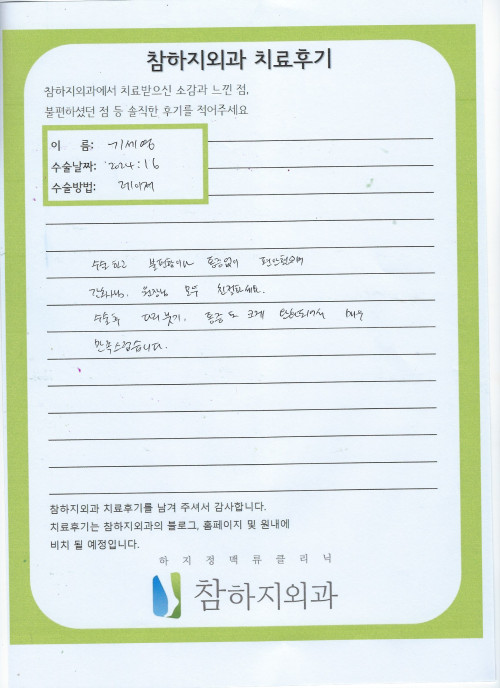 참하지외과 치료후기
참하지외과에서 치료받으신 소감과 느낀 점,
불편하셨던 점 등 솔직한 후기를 적어주세요
이 름: 기세영
수술날짜: 2024:16
수술방법: 레이저
수술 하고 불편함이나 통증없이 편안했으며
간호사님, 원장님 모두 친절하세요.
수술후 다리 붓기, 통증 도 크게 매우
만족스럽습니다.
참하지외과 치료후기를 남겨 주셔서 감사합니다.
치료후기는 참하지외과의 블로그, 홈페이지 및 원내에
비치 될 예정입니다.
하지정맥류클리닉
참하지외과